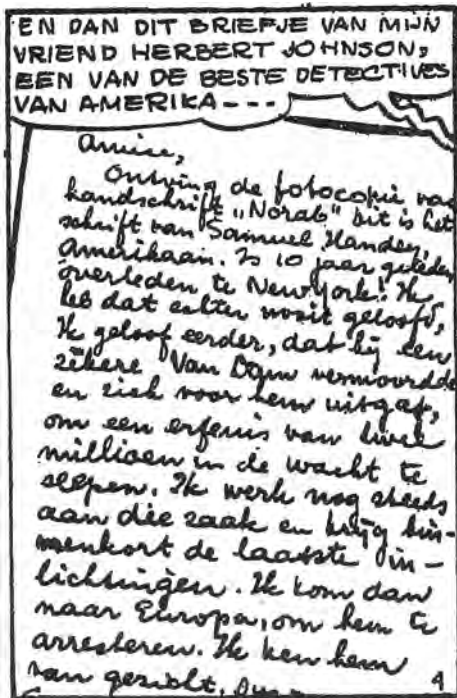 EN DAN DIT BRIEFJE VAN MIJN
VRIEND HERBERT JOHNSON,
EEN VAN DE BESTE DETECTIVES
VAN AMERIKA ---
Amice,
Ontving de fotocopie van
handschrift "Norab" dit is het
schrift van Samuel Handey,
Amerikaan. Is 10 jaar geleden
overleden te New York! Ik
heb dat echter nooit geloofd,
Ik geloof eerder, dat hij een
zekere Van Dam vermoordde
en zich voor hem uitgaf,
om een erfenis van twee
millioen in de wacht te
slepen. Ik werk nog steeds
aan die zaak en krijg bin-
nenkort de laatste in-
lichtingen. Ik kom dan
naar Europa, om hem te
arresteren. Ik ken hem
van gezicht,
4